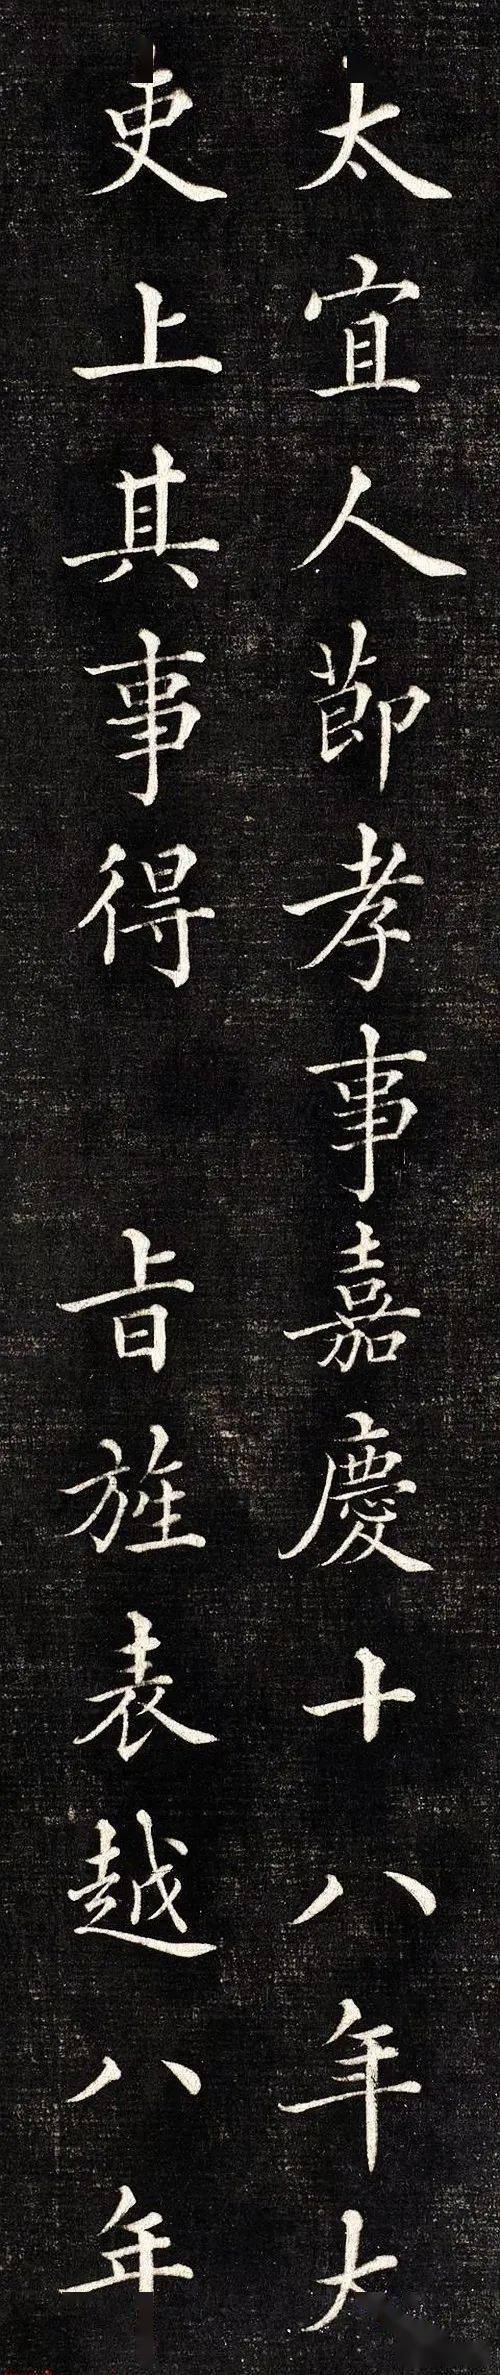 太宜人節孝事嘉慶十八年大
吏上其事得 旨旌表越八年